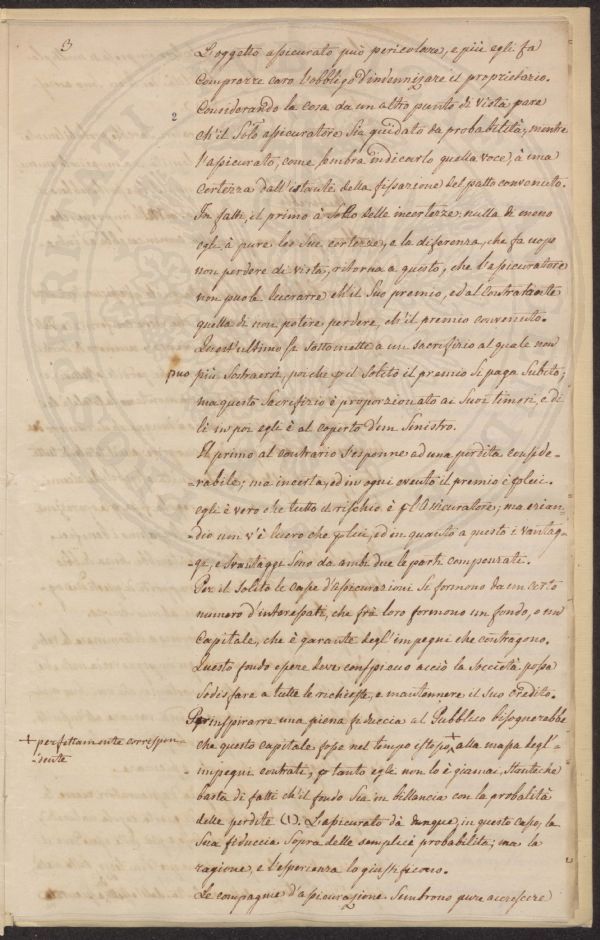 3
L'oggetto assicurato può pericolare, e più egli fa
Comprarre caro l'obbligo d'indennizare il proprietario.
Considerando la cosa da un altro punto di vista pare
2
ch'il Solo assicuratore Sia guidato da probabilità, mentre
l'assicurato, come sembra indicarlo quella voce, à una
certezza dall'istante della fissazione del patto convenuto.
In fatti, il primo à Sotto delle incertezze; nulla di meno
egli à pure les Sue certezze, e la diferenza, che fa uopo
non perdere di vista, ritorna a questo, che l'assicuratore
non puole lucrarre ch'il Suo premio, ed al Contratante
quella di non potere perdere, ch'il premio convenuto.
Quest'ultimo Se sottomette a un sacrifizio al quale non
puo più Sostraersi, poiche p il Solito il premio Si paga Subito;
ma questo Sacrifizio è proporzionato ai Suoi timori, e di
lì in poi egli è al coperto d'un Sinistro.
Il primo al contrario s'esponne ad una perdita conside-
-rabile; ma incerta, ed in ogni evento il premio è p lui.
egli è vero che tutto il rischio è p l'Assicuratore; ma ezian-
-dio non v'è lucro che p lui, ed in quanto a questo i vantag-
-gi, e svantaggi sono da ambi due le parti compensate.
Per il Solito le Case d'assicurazioni Si formono da un certo
numero d'interessati, che frà loro formono un fondo, o un
Capitale, che è garante degl'impegni che contragono.
Questo fondo essere deve conspicuo acciò la Società possa
Sodisfare a tutte le richieste, e mantennere il suo Credito.
Per inspirarre una piena fiduccia al Pubblico bisognerebbe
che questo capitale fosse nel tempo istesso + alla massa degl'-
+ perfettamente correspon-
-dente
-impegni contrati, p tanto egli non lo è giamai, Stanteche
basta di fatti ch'il fondo Sia in billancia con la probalità
delle perdite (1). L'assicurato dà dunque, in questo caso, la
Sua fiduccia Sopra delle semplice probabilità; ma la
ragione, e l'esperienza lo giustificono.
Le compagnie d'assicurazione Sembrono pure accrescere